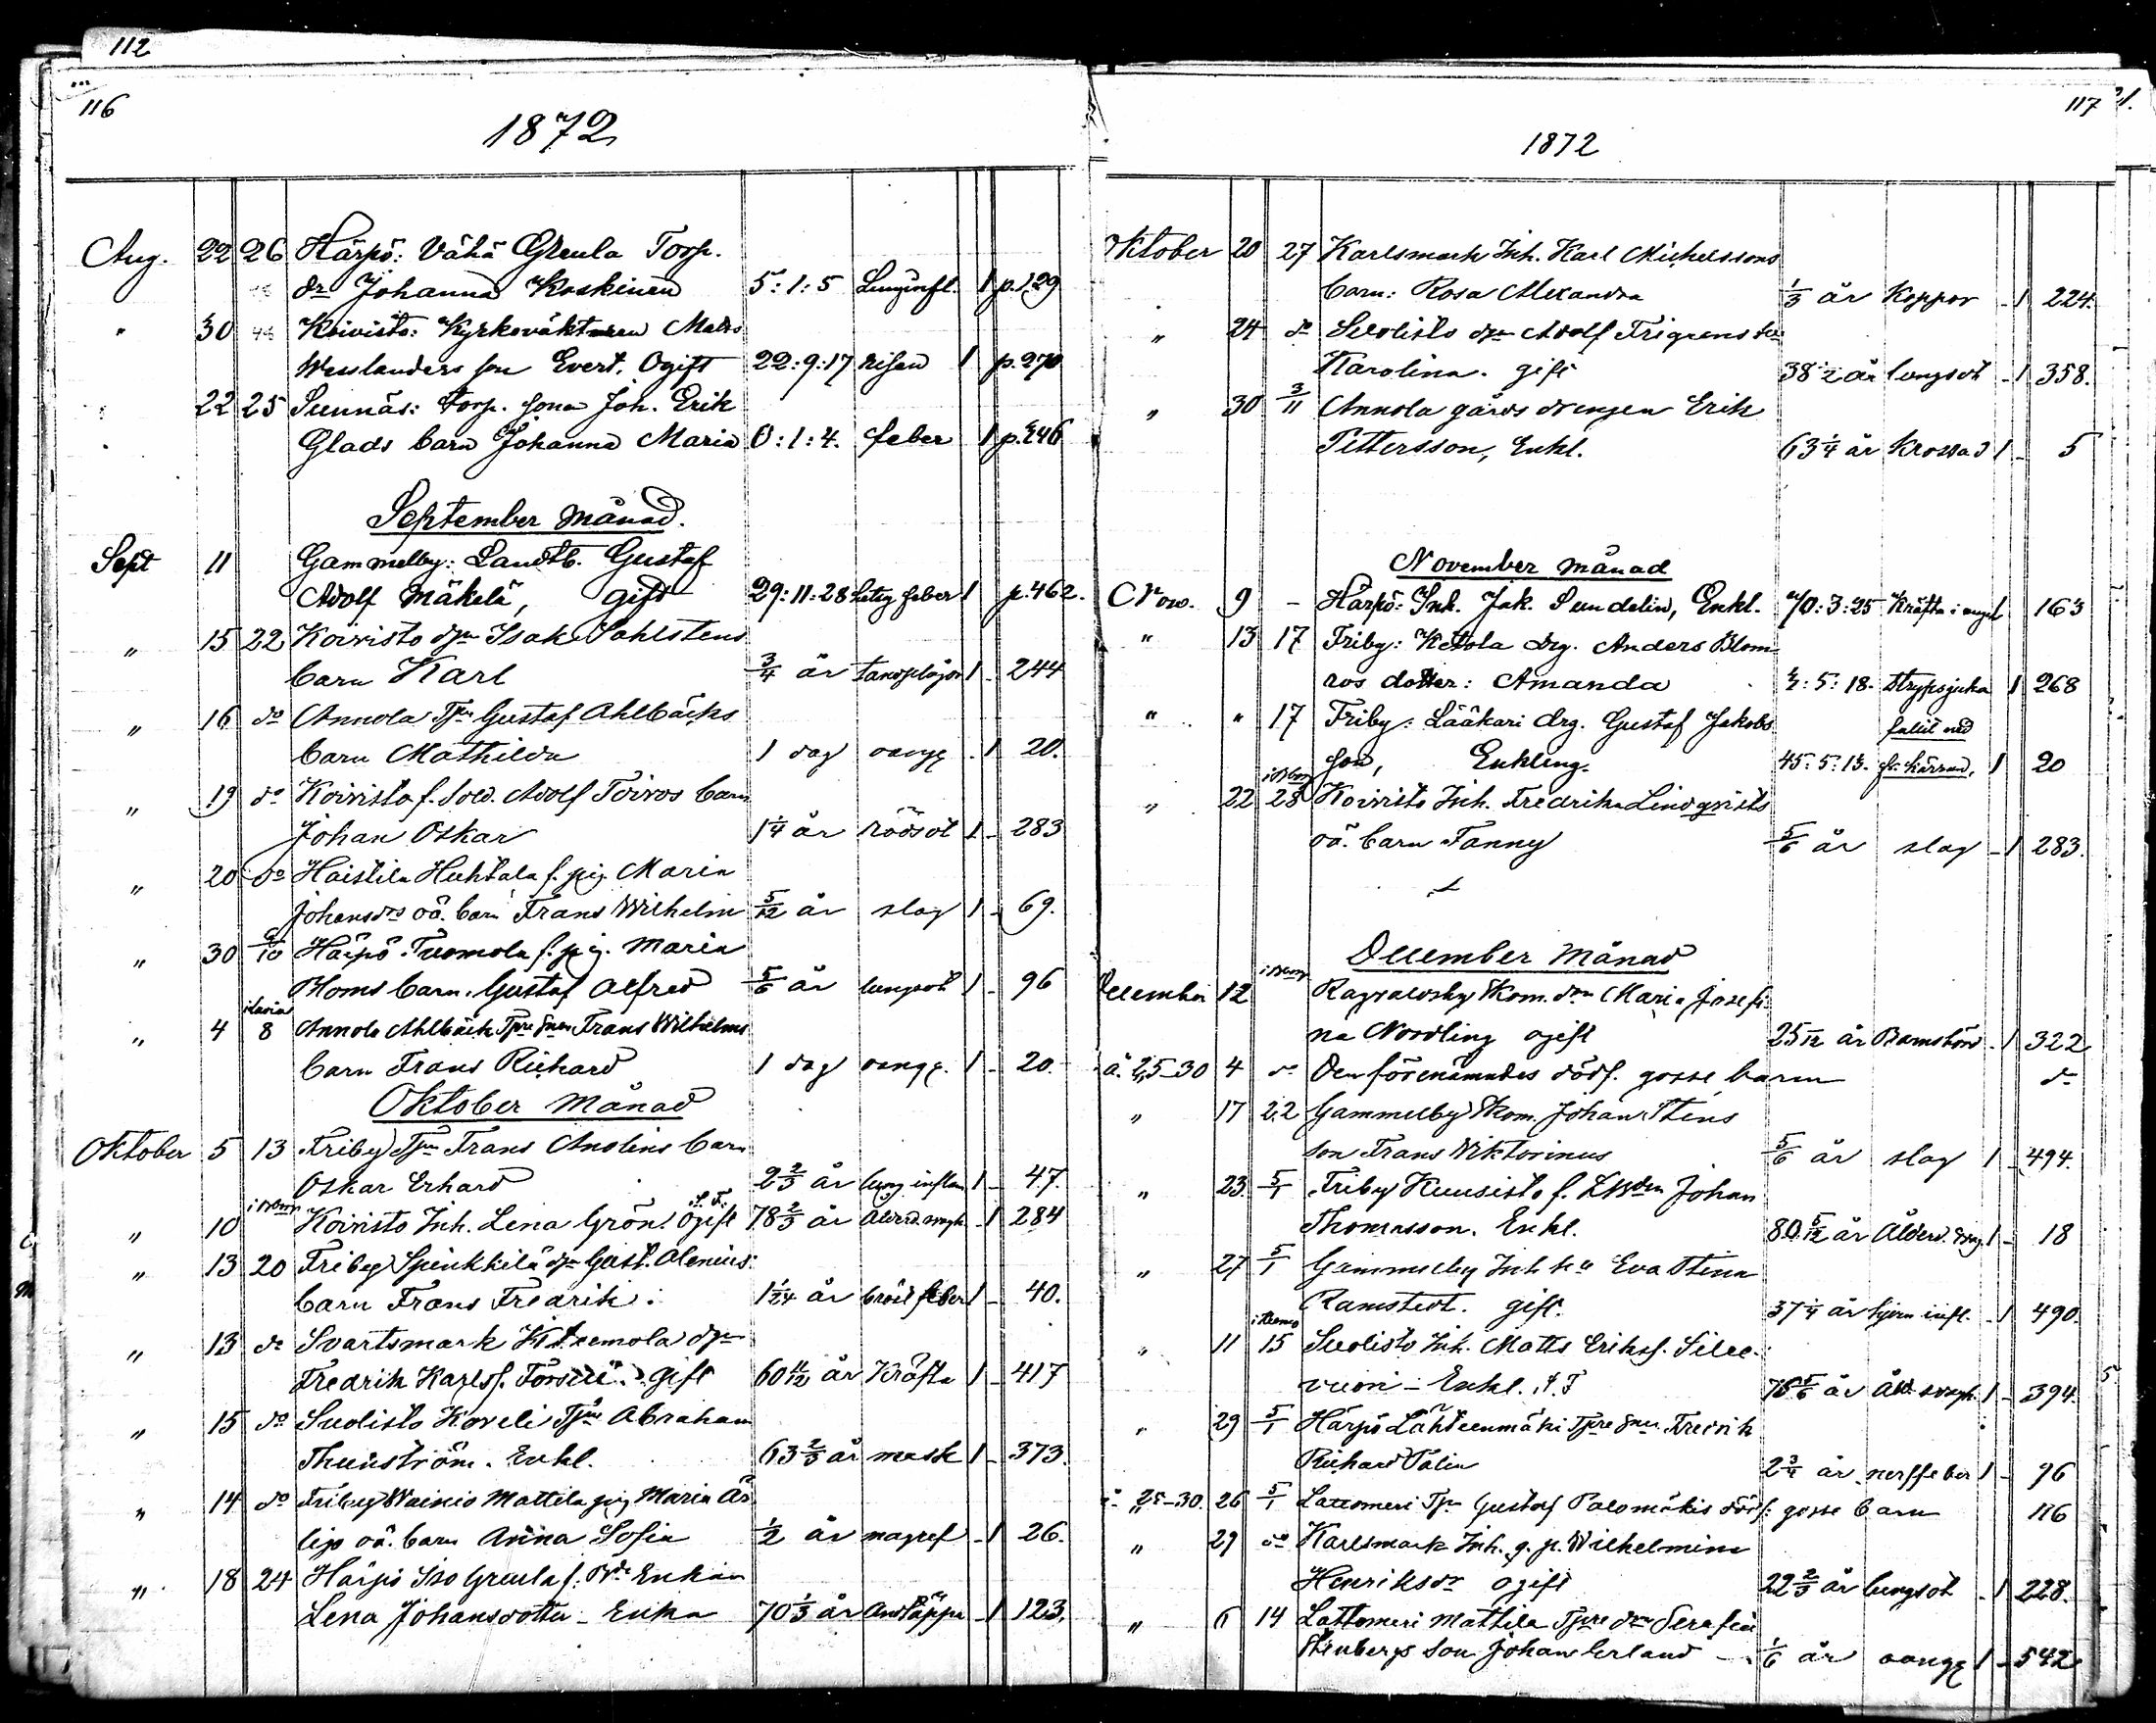 112
116
1872
Aug. 22 26 Härpö: Vähä Greula Torp.
dr Johanna Koskinen 5:1:5 Lunginfl. 1 p.129
" 30 Koivisto: Kyrkoväktaren Matts
Wesslanders son Evert. Ogift 22:9:17 1 p.270
22 25 Sunnäs: Torp. sona Joh. Erik
Glads barn Johanna Maria 0:1:4. feber 1 p.246
September månad.
Sept 11 Gammelby: Landtb. Gustaf
Adolf Mäkelä, gift 29:11:28 hetsig feber 1 p.462.
" 15 22 Koivisto Isak Sahlstens
barn Karl 3/4 år 1 - 244
" 16 do Annola Gustaf Ahlbäcks
barn Mathilda 1 dag oangg. 1 20.
" 19 do Koivisto f. Sold. Adolf Toivos barn
Johan Oskar 1 1/4 år rödsot 1 - 283
" 20 do Haistila Huhtala f. pig. Maria
Johansdrs oä. barn Frans Wilhelm 5/12 år slag 1 - 69.
" 30 6/10 Härpö Tuomola f. pig. Maria
Bloms barn. Gustaf Alfred 5/6 år lungsot 1 - 96
" 4 8 Annola Ahlbäck Frans Wilhelms
barn Frans Richard 1 dag oangg. 1 - 20.
Oktober månad
Oktober 5 13 Friby Frans Anolins barn
Oskar Erhard 2 2/3 år lung inflam 1 - 47.
" 10 Koivisto Inh. Lena Grön. Ogift 78 2/3 år 1 284
" 13 20 Friby Spinkkilä Gust. Alenius:
barn Frans Fredrik. 1 1/24 år bröst feber 1 - 40.
" 13 do Svartsmark
Fredrik Karlss. gift 60 11/12 år Kräfta 1 - 417
" 15 do Suolisto Koveli Abraham
Thunström. Enkl. 63 2/3 år mask 1 - 373.
" 14 do Friby Wainio Mattila pig Maria
oä. barn Anna Sofia 1/2 år magref 1 26.
" 18 24 Härpö Iso Greula f. Enkan
Lena Johansdotter - Enka 70 1/3 år Andtäppa 1 123.
117
1872
Oktober 20 27 Karlsmark Inh. Karl Michelssons
barn: Rosa Alexandra 1/3 år Koppor 1 224.
" 24 do Suolisto Adolf
Karolina. gift 38 1/2 år lungsot 1 358.
" 30 3/11 Annola gårds drengen Erik
Pettersson, Enkl. 63 1/4 år Krossad 1 - 5
November månad
Nov. 9 - Härpö: Inh. Jak. Sundelin, Enkl. 70:3:25 Kräfta i 163
" 13 17 Friby: Ketola drg. Anders Blom
ros dotter: Amanda 5:18. strypsjuka 1 268
" " 17 Friby: Lääkäri drg. Gustaf Jakobs
fallit ned
son, Enkling. 45:5:13. fr. kärran, 1 20
" 22 28 Koivisto Inh. Fredrika Lindqvists
oä. barn Fanny 5/6 år slag - 1 283.
December månad
December 12 Ragvaldsby Maria Josefi
na Nordling ogift 25 år Barnsbörd 1 322
25-30 4 do Den förenämndes dödf. gosse barn do
" 17 22 Gammelby Johan Stens
son Frans Wiktorinus 5/6 år slag 1 494.
" 23 5/1 Friby Kuusisto f. Johan
Thomasson. Enkl. 80 5/12 år Ålderd. 1 - 18
" 27 5/1 Gammelby Inh. Eva Stina
Ramstedt. gift. 37 1/4 år hjern infl. 1 490.
" 11 15 Suolisto Inh. Matts Erikss.
vuori - Enkl. 76 5/6 år 1 - 394.
" 29 5/1 Härpö Lähteenmäki Fredrik
Richard Palin 2 3/4 år nerffeber 1 - 96
25-30. 26 5/1 Lattomeri Gustaf Palomäkis dödf. gosse barn 116
" 29 do Karlsmark Inh. Wilhelmina
Henriksdr ogift 22 2/3 år lungsot 1 228.
" 6 14 Lattomeri Mattila Serafia
Stenbergs son Johan Erland - 1/6 år oangg 1 - 542